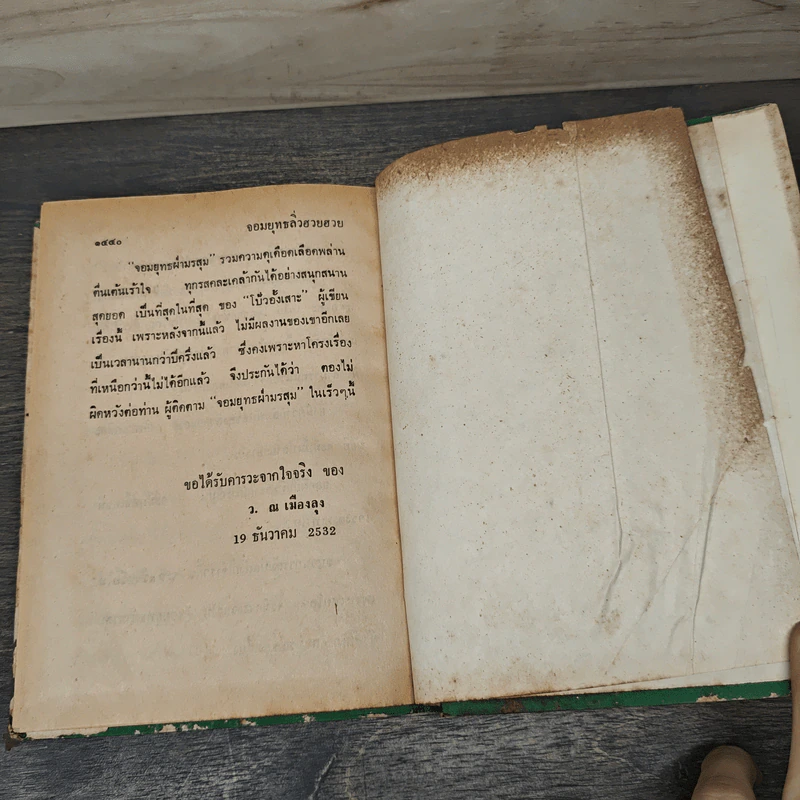 จอมยุทธลิ่วฮวยฮวย
๑๔๔๐
"จอมยุทธผ่ามรสุม" รวมความดุเดือดเลือดพล่าน
ตื่นเต้นเร้าใจ ทุกรสคละเคล้ากันได้อย่างสนุกสนาน
สุดยอด เป็นที่สุดในที่สุด ของ "โบ้วอั้งเสาะ" ผู้เขียน
เรื่องนี้ เพราะหลังจากนี้แล้ว ไม่มีผลงานของเขาอีกเลย
เป็นเวลานานกว่าปีครึ่งแล้ว ซึ่งคงเพราะหาโครงเรื่อง
ที่เหนือกว่านี้ไม่ได้อีกแล้ว จึงประกันได้ว่า ต้องไม่
ผิดหวังต่อท่าน ผู้ติดตาม "จอมยุทธผ่ามรสุม" ในเร็วๆนี้
ขอได้รับคารวะจากใจจริง ของ
ว. ณ เมืองลุง
19 ธันวาคม 2532